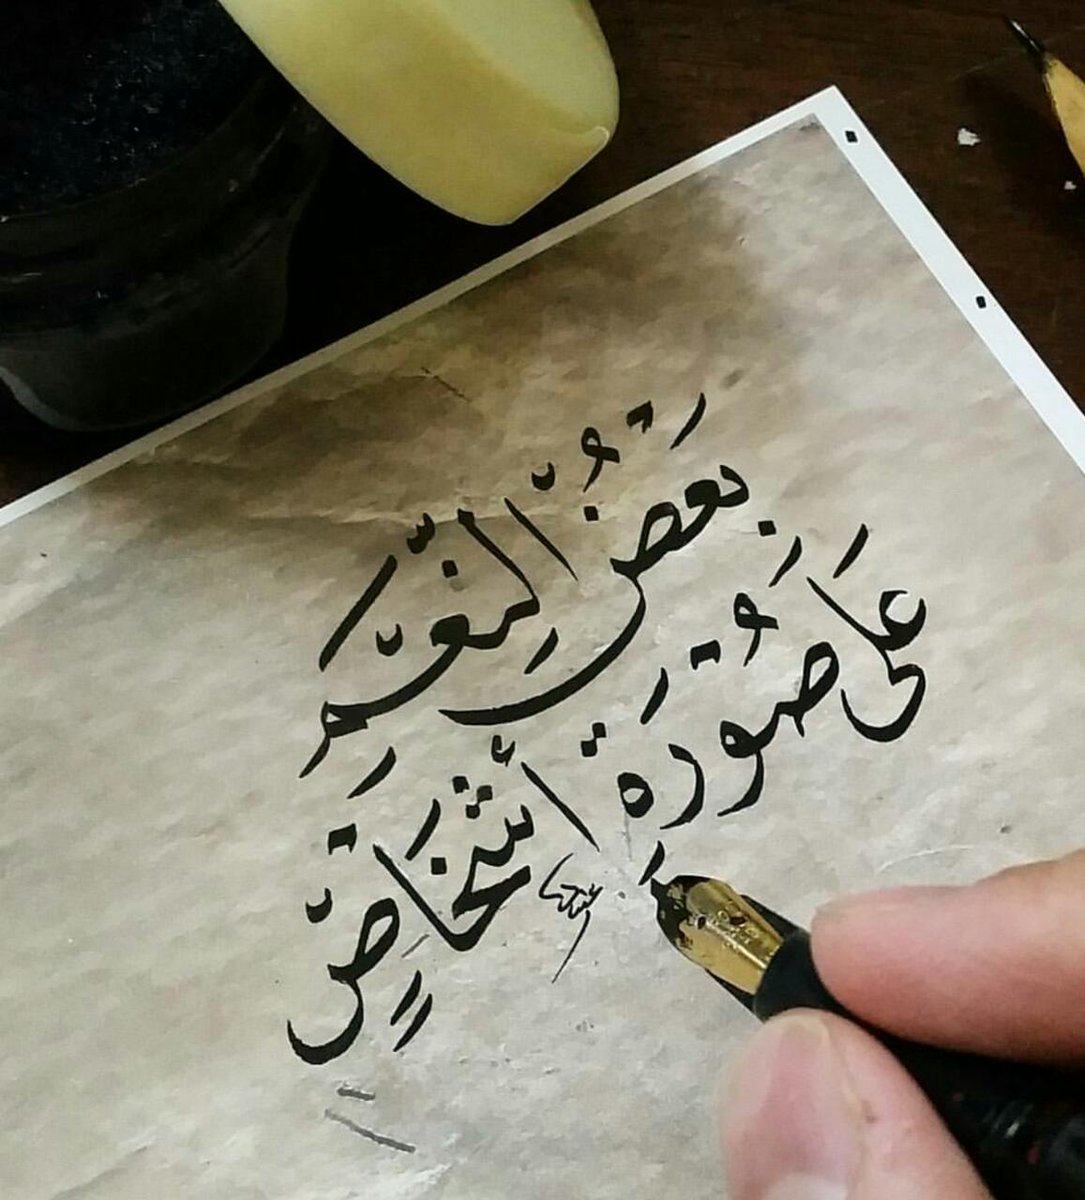 بَعضُ النِّعَمِ
عَلَى صُورَةِ أشخَاصٍ